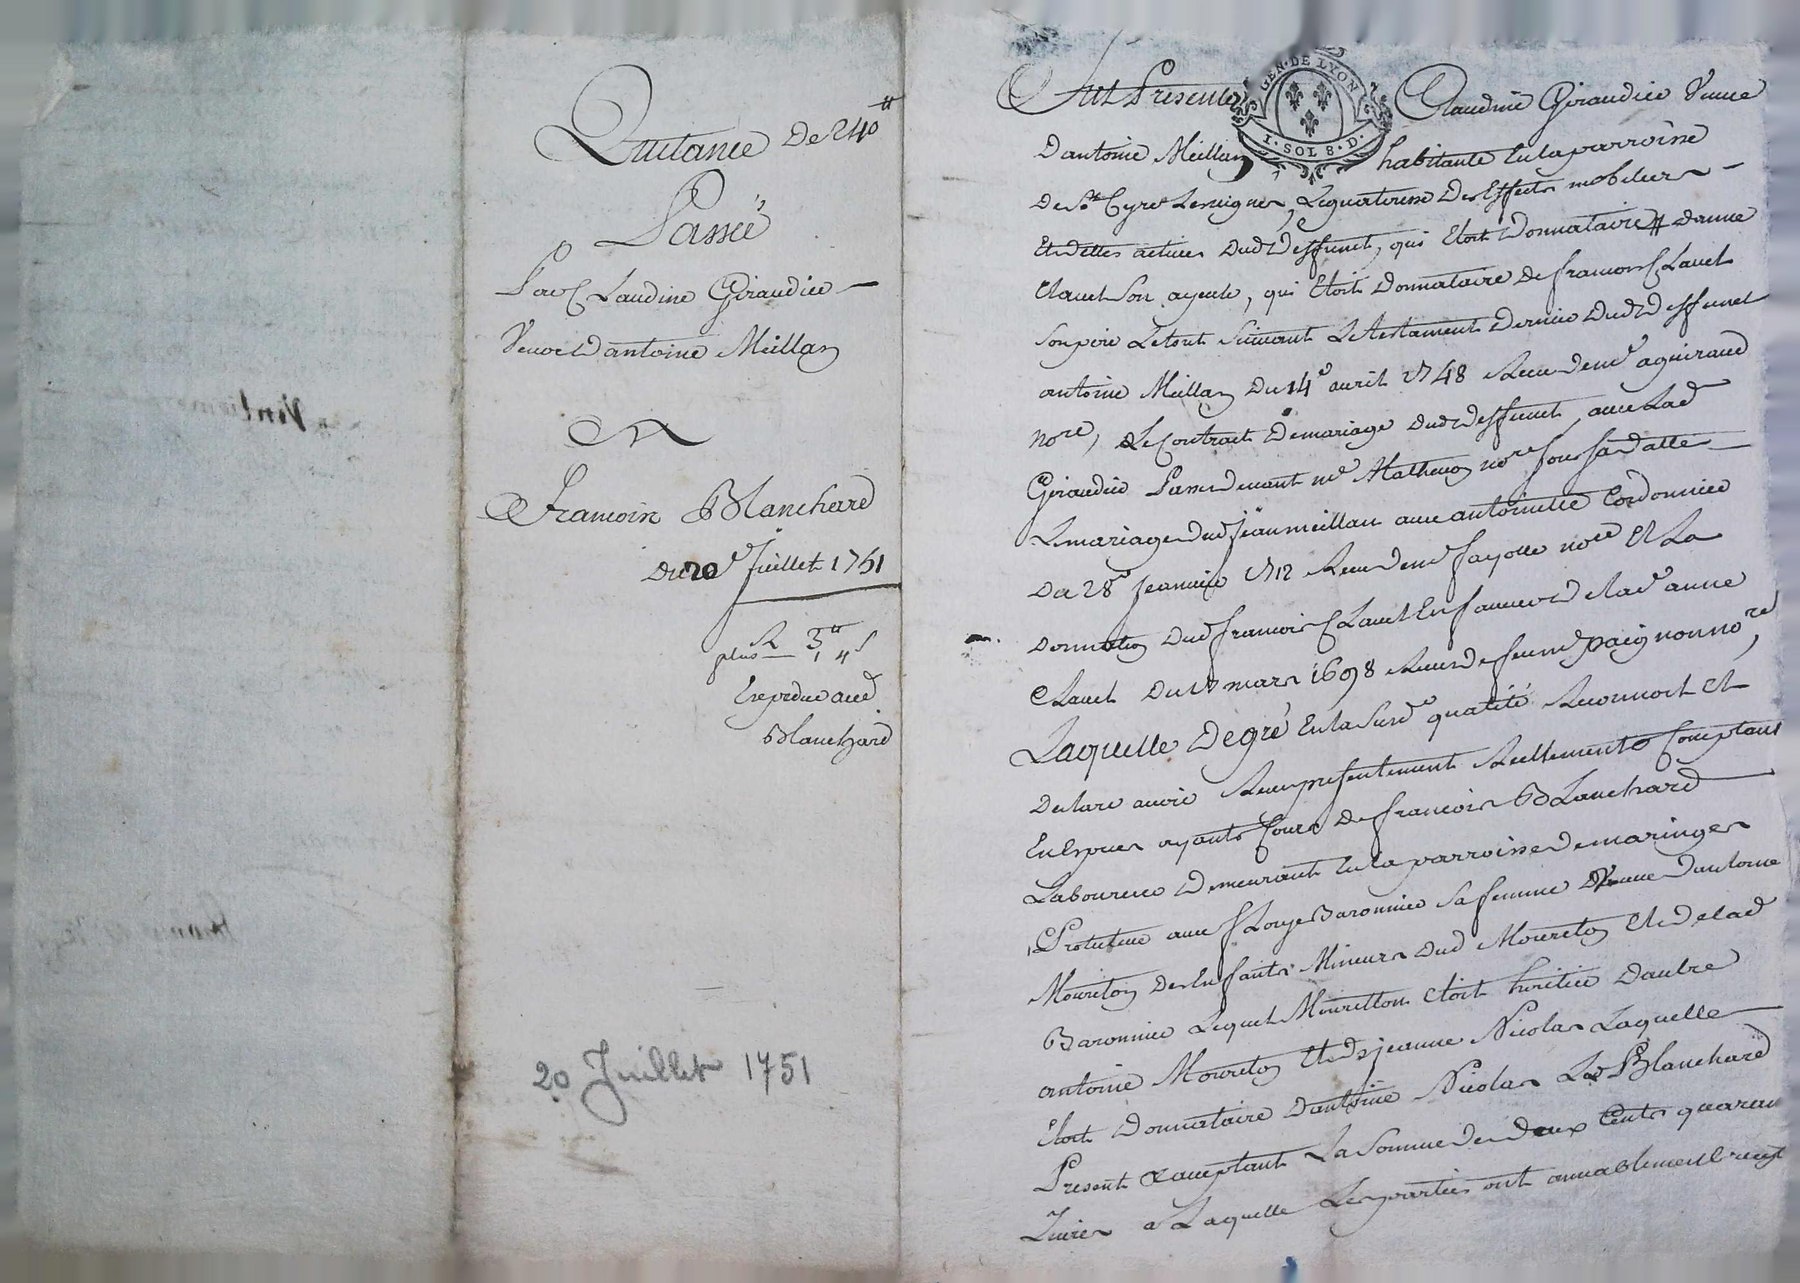 Quittance De 240 ₶
Passée
Par Claudine Giraudier
Veuve D antoine Meillan
A
Francois Blanchard
Du 20e Juillet 1751
R 3 ₶
plus 1 4 s
Blanchard
20 Juillet 1751
GEN. DE LYON
1. SOL 8. D.
fut Presente Claudine Giraudier Veuve
D antoine Meillan habitante En la parroisse
De St Cyr Les vignes, Legataresse Des Effects mobiliers
Et dettes actives Dud Deffunct, qui Etoit Donnataire D anne
Clavel son ayeule, qui Etoit Donnataire de francois Clavel
son pere Le tout suivant Le testament Dernier Dud Deffunct
antoine Meillan Du 14e avril 1748 Receu de me aguiraud
nore, Le Contract De mariage Dud Deffunct avec Lad
Giraudier Passé devant me Mathevon nore sous sa Datte
Le mariage Dud jean meillan avec antoinette Cordonnier
Du 28e Janvier 1712 Receu de me fayolle nore Et La
Donnation Dud francois Clavel En faveur de lad anne
Clavel Du mars 1698 Receu de feu me paignon nore,
Laquelle De gré En la susd qualité Reconnoit Et
Declare avoir Receu presentement Reellement Comptant
En Espces ayants Cours De francois Blanchard
Laboureur Demeurant En la parroisse De maringes
Protuteur avec Louise Baronnier sa femme Veuve D antoine
Moureton Des Enfants Mineurs Dud Moureton Et De lad
Baronnier Lequel Mouretton Etoit heritier D autre
antoine Moureton Et De jeanne Nicolas Laquelle
Etoit Donnataire D antoine Nicolas Led Blanchard
Present & acceptant La Somme de Deux Cents quarante
Livres a Laquelle Les parties ont amiablement